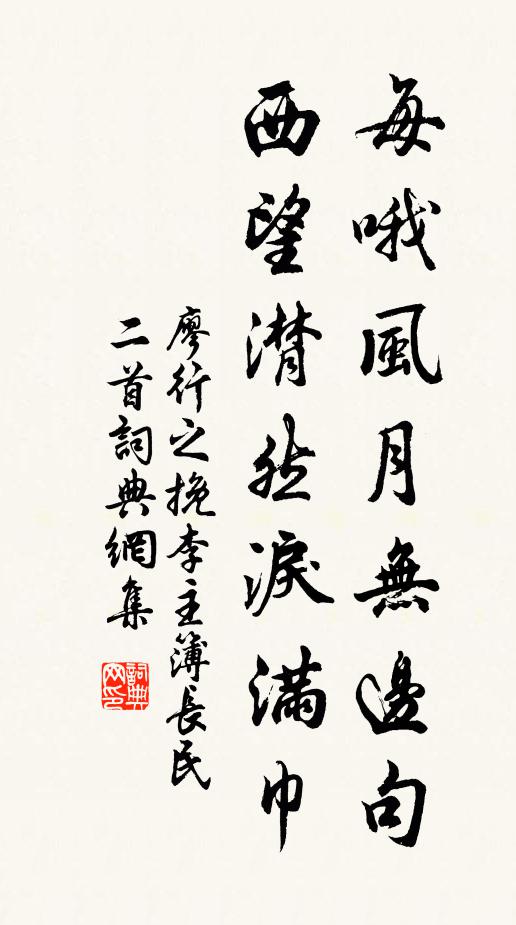 每哦風月無邊句
西望潸然淚滿巾
廖行之挽李主簿長民
二首詞典網集
詞典
网印